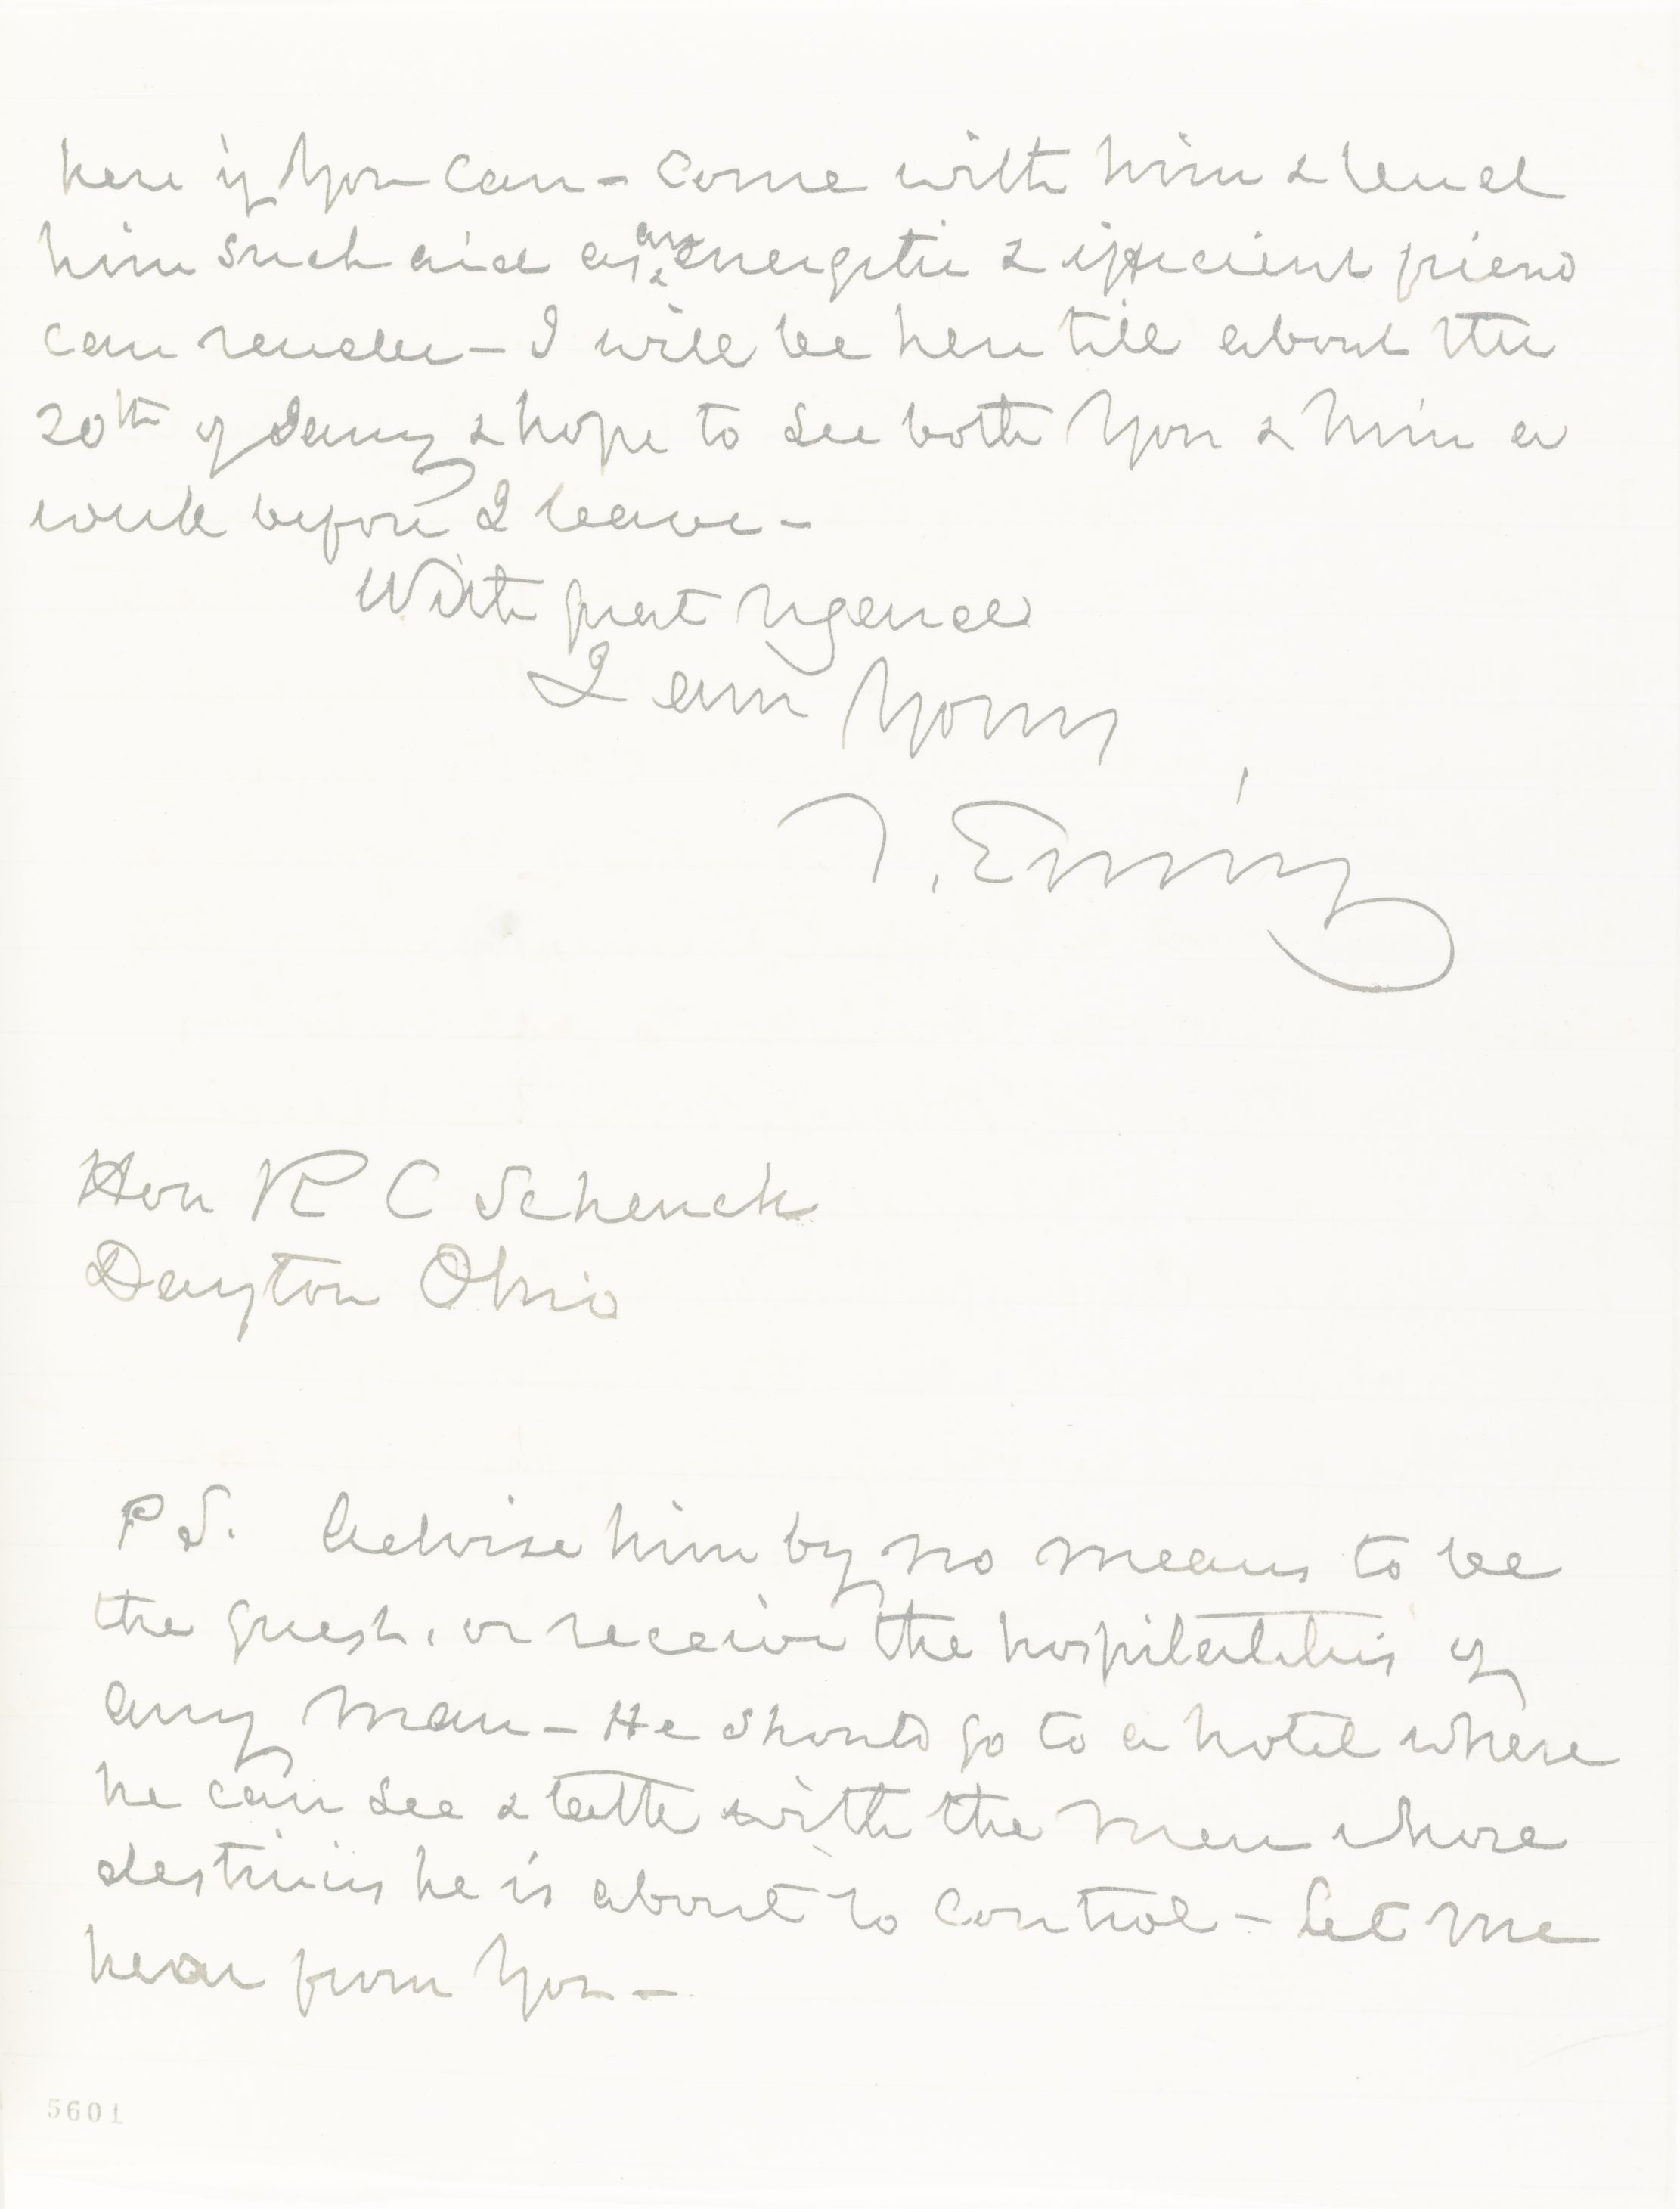 here if you can - come with him & lend
him such aid as an energetic & efficient friend
can render - I will be here till about the
20th of Jany & hope to see both you & him a
week before I leave -
With great regard
I am Yours
T. Ewing
Hon R C Schenck
Dayton Ohio
P S. Advise him by no means to be
the guest, or receive the hospitalities of
any man - He should go to a hotel where
he can see & talk with the men whose
destinies he is about to control - Let me
hear from you -
5601